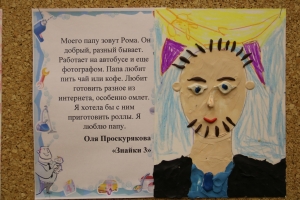 Моего папу зовут Рома. Он
добрый, разный бывает.
Работает на автобусе и еще
фотографом. Папа любит
пить чай или кофе. Любит
готовить разное из
интернета, особенно омлет.
Я хотела бы с ним
приготовить роллы. Я
люблю папу.
Оля Проскурякова
«Знайки 3»